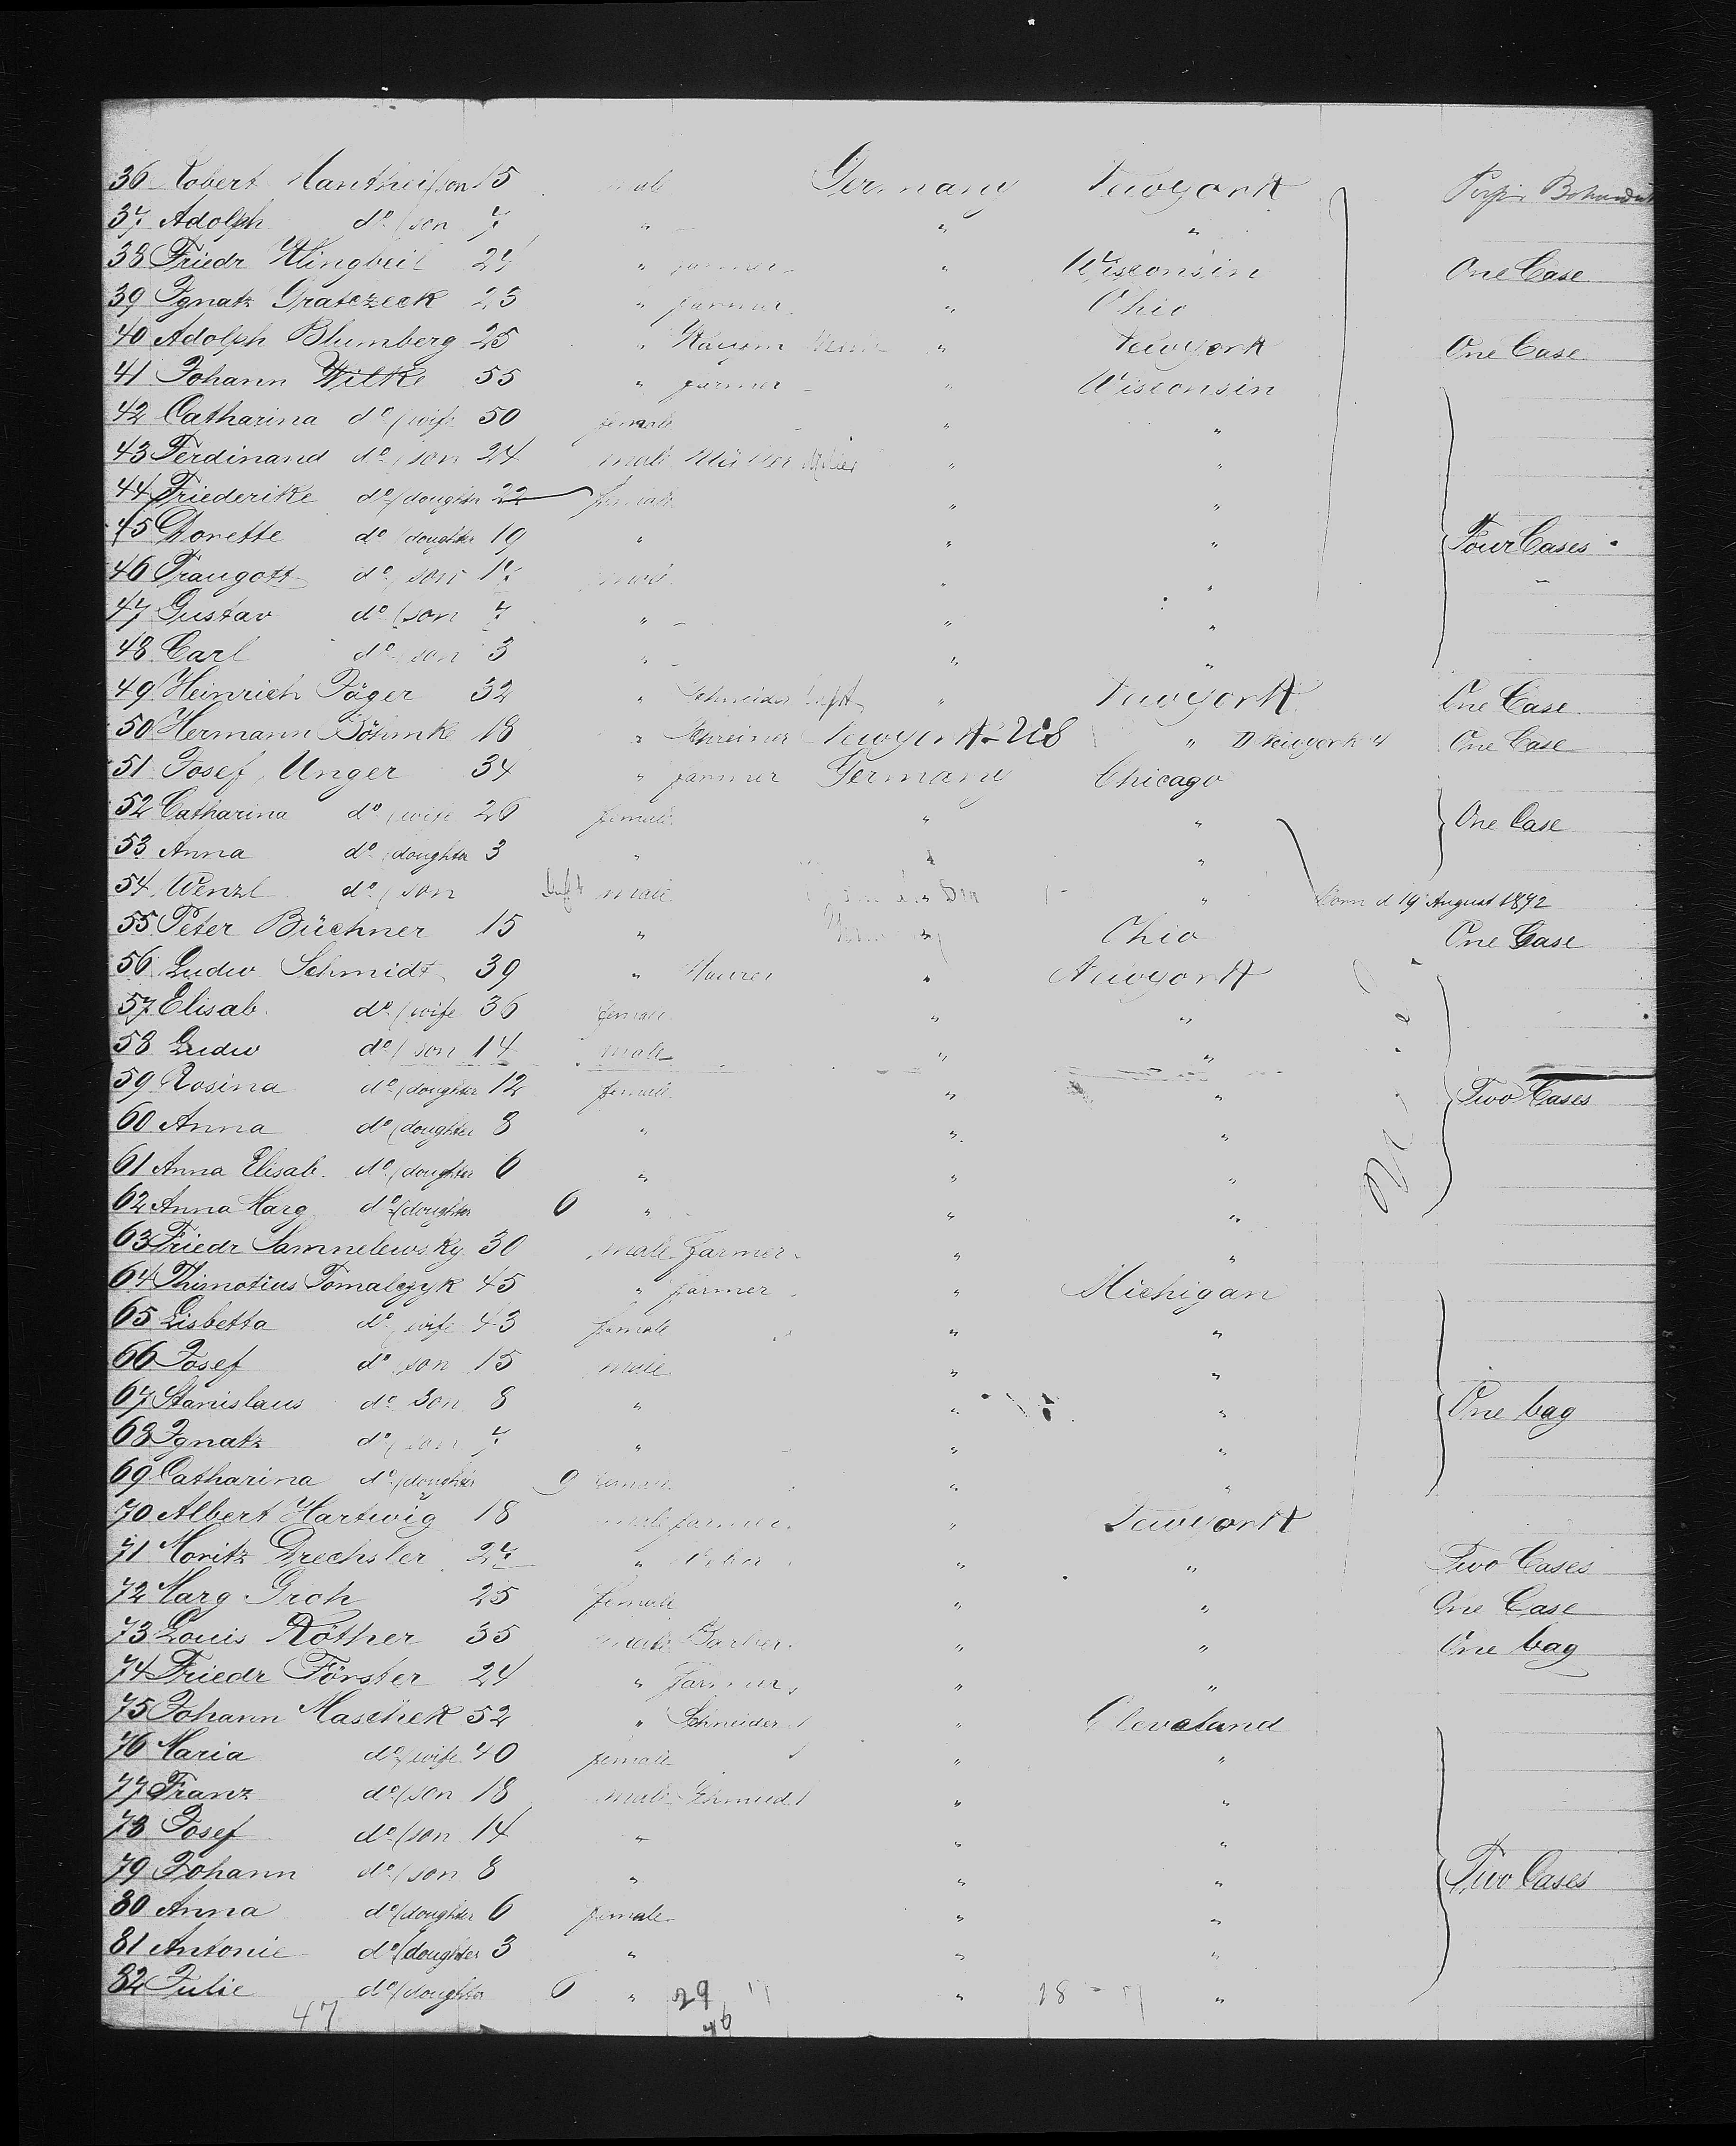 36 Robert Manthei (son 15 male Germany Newyork
37 Adolph do (son 7 " " "
38 Friedr Klingbeil 27 " farmer " Wisconsin One Case
39 Ignatz Gratczeck 25 " farmer " Ohio
40 Adolph Blumberg 25 " Kaufm " Newyork One Case
41 Johann Wilke 55 " farmer " Wisconsin
42 Catharina do (wife 50 female " "
43 Ferdinand do (son 24 male Müller Miller " "
44 Friederike do (doughter 22 female " "
45 Dorette do (doughter 19 " " " Four Cases
46 Traugott do (son 17 male " "
47 Gustav do (son 7 " " "
48 Carl do (son 3 " " "
49 Heinrich Jäger 32 " Schneider " Newyork One Case
50 Hermann Böhmke 18 " Schreiner Newyork U S " Newyork One Case
51 Josef Unger 34 " farmer Germany Chicago
52 Catharina do (wife 26 female " " One Case
53 Anna do (doughter 3 " " "
54 Wenzl do (son Inft male " " born d 19 August 1872
55 Peter Büchner 15 " Ohio One Case
56 Ludw Schmidt 39 " Maurer " Newyork
57 Elisab. do (wife 36 female " "
58 Ludw do (son 14 male " "
59 Rosina do (doughter 12 female " " Two Cases
60 Anna do (doughter 8 " " "
61 Anna Elisab. do (doughter 6 " " "
62 Anna Marg do (doughter 6 " " "
63 Friedr Samnelewsky 30 male farmer " "
64 Thimotius Tomalczyk 45 " farmer " Michigan
65 Lisbetta do (wife 43 female " "
66 Josef do (son 15 male " "
67 Stanislaus do Son 8 " " " One bag
68 Ignatz do (son 7 " " "
69 Catharina do (doughter 9 female " "
70 Albert Hartwig 18 male farmer " Newyork
71 Moritz Drechsler 27 " " " Two Cases
72 Marg. Groh 25 female " " One Case
73 Louis Röther 35 male Barber " " One bag
74 Friedr Förster 24 " farmer " "
75 Johann Maschek 52 " Schneider " Cleveland
76 Maria do (wife 40 female " "
77 Franz do (son 18 male Schmied " "
78 Josef do (son 14 " " "
79 Johann do (son 8 " " " Two Cases
80 Anna do (doughter 6 female " "
81 Antonie do (doughter 3 " " "
82 Julie do (doughter 6 " 29 " "
47